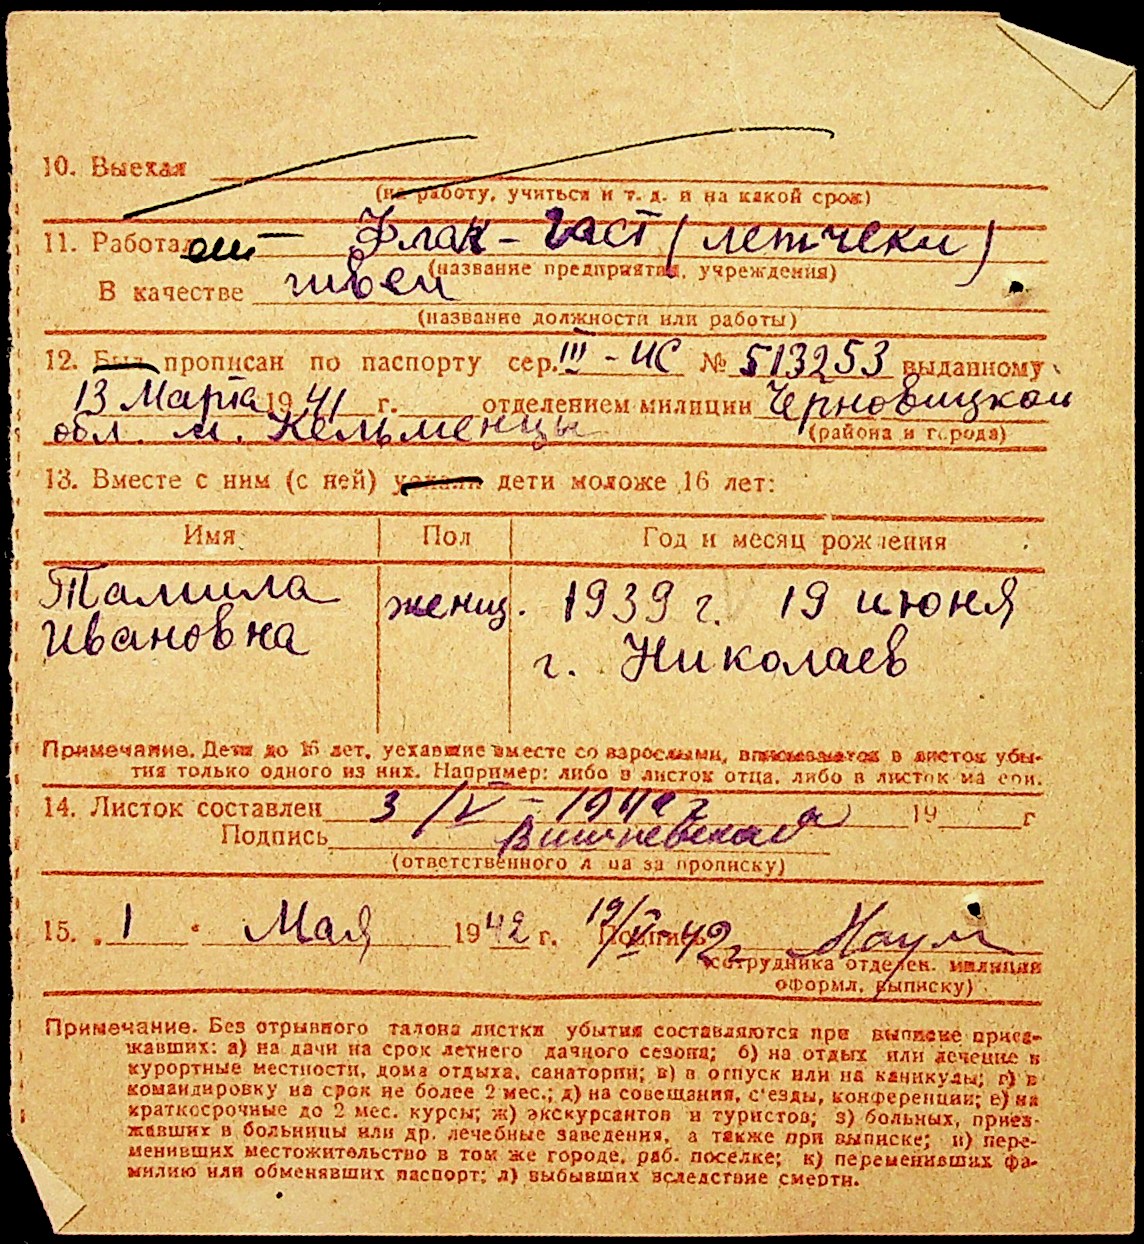 10. Выехал
(на работу, учиться и т. д. и на какой срок)
11. Работает — Флак-Част (летчеки)
(название предприятия, учреждения)
В качестве швеи
(название должности или работы)
12. Был прописан по паспорту сер. III-ИС № 513253 выданному
13 Марта 1941 г. отделением милиции Черновицкой
обл. м. Кельменцы
(района и города)
13. Вместе с ним (с ней) уехали дети моложе 16 лет:
Имя Пол Год и месяц рождения
Тамила женщ. 1939 г. 19 июня
Ивановна г. Николаев
Примечание. Дети до 16 лет, уехавшие вместе со взрослыми, вписываются в листок убы-
тия только одного из них. Например: либо в листок отца, либо в листок матери.
14. Листок составлен 3/V – 1942 г 19 г
Подпись Вишневская
(ответственного лица за прописку)
15. „ 1 " Мая 1942 г. Подпись 19/V-42г Наум
(сотрудника отделен. милиции
оформл. выписку)
Примечание. Без отрывного талона листки убытия составляются при выписке приез-
жавших: а) на дачи на срок летнего дачного сезона; б) на отдых или лечение в
курортные местности, дома отдыха, санатории; в) в отпуск или на каникулы; г) в
командировку на срок не более 2 мес.; д) на совещания, с'езды, конференции; е) на
краткосрочные до 2 мес. курсы; ж) экскурсантов и туристов; з) больных, приез-
жавших в больницы или др. лечебные заведения, а также при выписке; и) пере-
менивших местожительство в том же городе, раб. поселке; к) переменивших фа-
милию или обменявших паспорт; л) выбывших вследствие смерти.